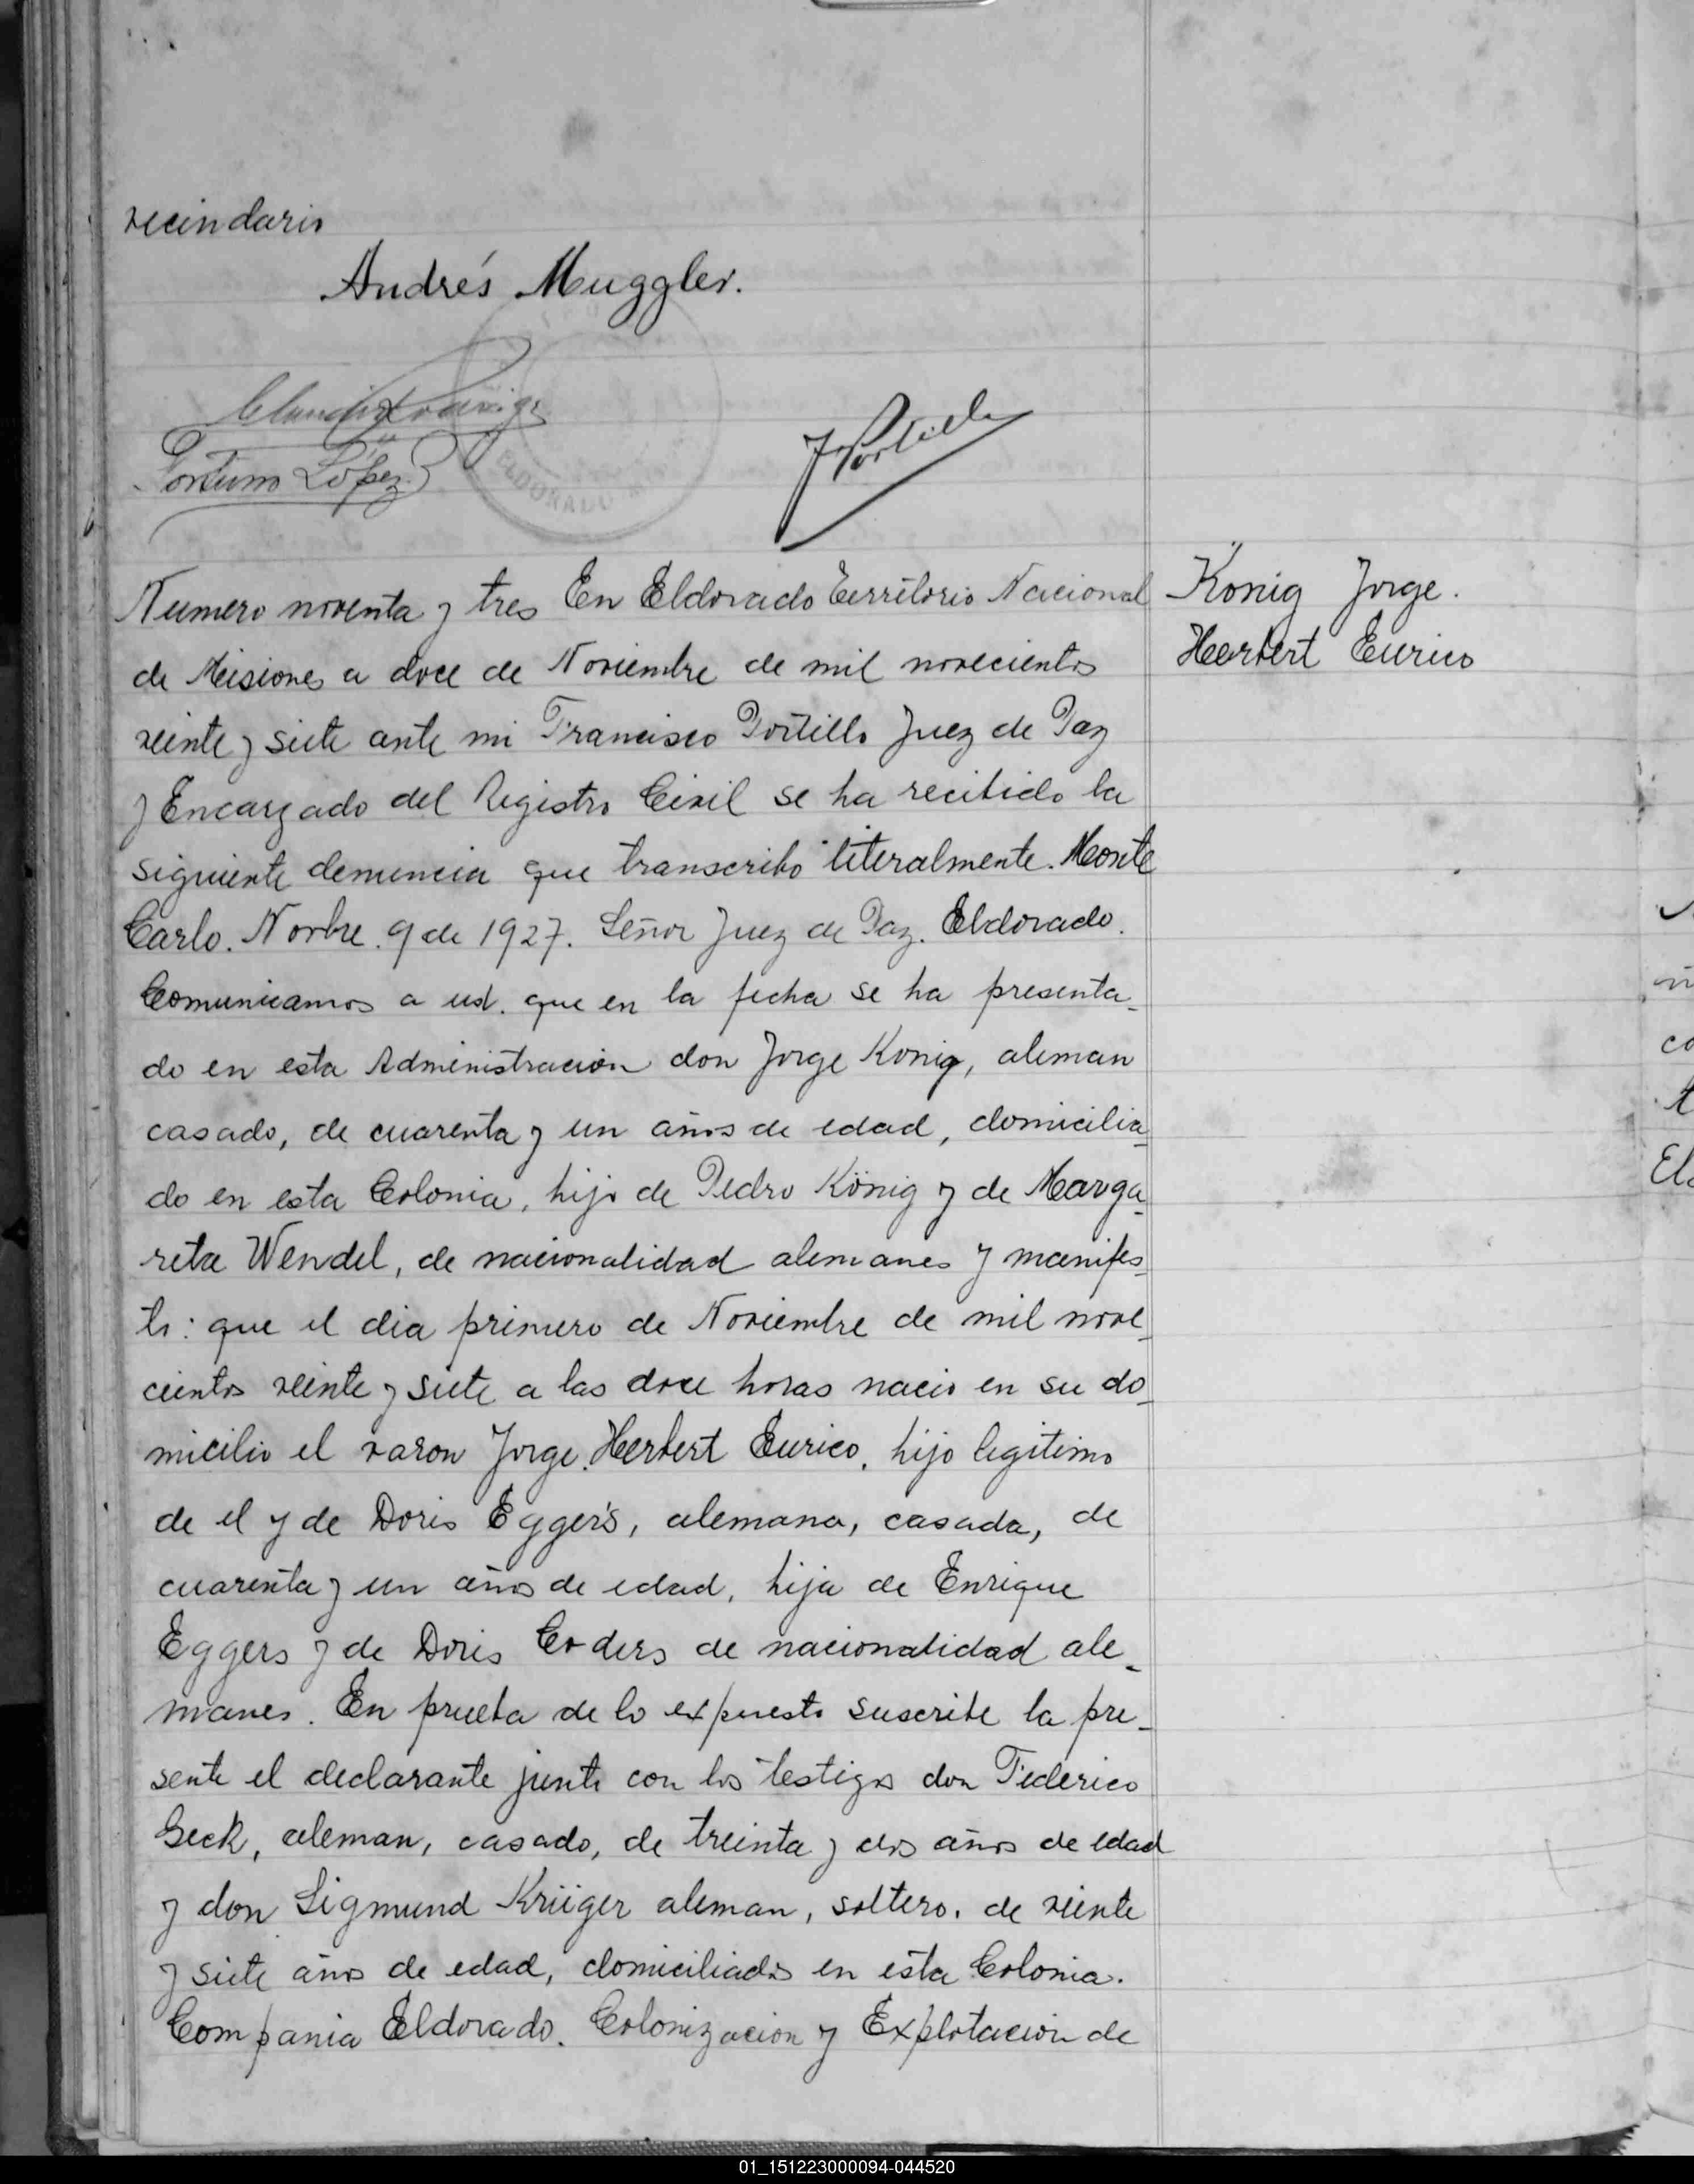 vecindario
Andrés Muggler.
López
ELDORADO
JPortillo
Numero noventa y tres En Eldorado Territorio Nacional
König Jorge.
Herbert Eurico
de Misiones a doce de Noviembre de mil novecientos
veinte y siete ante mi Francisco Portillo Juez de Paz
y Encargado del Registro Civil se ha recibido la
siguiente denuncia que transcribo literalmente. Monte
Carlo. Novbre. 9 de 1927. Señor Juez de Paz. Eldorado.
Comunicamos a ud. que en la fecha se ha presenta-
do en esta Administración don Jorge Konig, aleman
casado, de cuarenta y un años de edad, domicilia-
do en esta Colonia, hijo de Pedro König y de Marga-
reta Wendel, de nacionalidad alemanes y manifes-
to: que el dia primero de Noviembre de mil nove-
cientos veinte y siete a las doce horas nacio en su do-
micilio el varon Jorge Herbert Eurico, hijo legitimo
de el y de Doris Eggers, alemana, casada, de
cuarenta y un años de edad, hija de Enrique
Eggers y de Doris Corders de nacionalidad ale-
manes. En prueba de lo expuesto suscribe la pre-
sente el declarante junto con los testigos don Federico
Geck, aleman, casado, de treinta y dos años de edad
y don Sigmund Krüger aleman, soltero. de veinte
y siete años de edad, domiciliados en esta Colonia.
Compania Eldorado. Colonizacion y Explotacion de
01_151223000094-044520